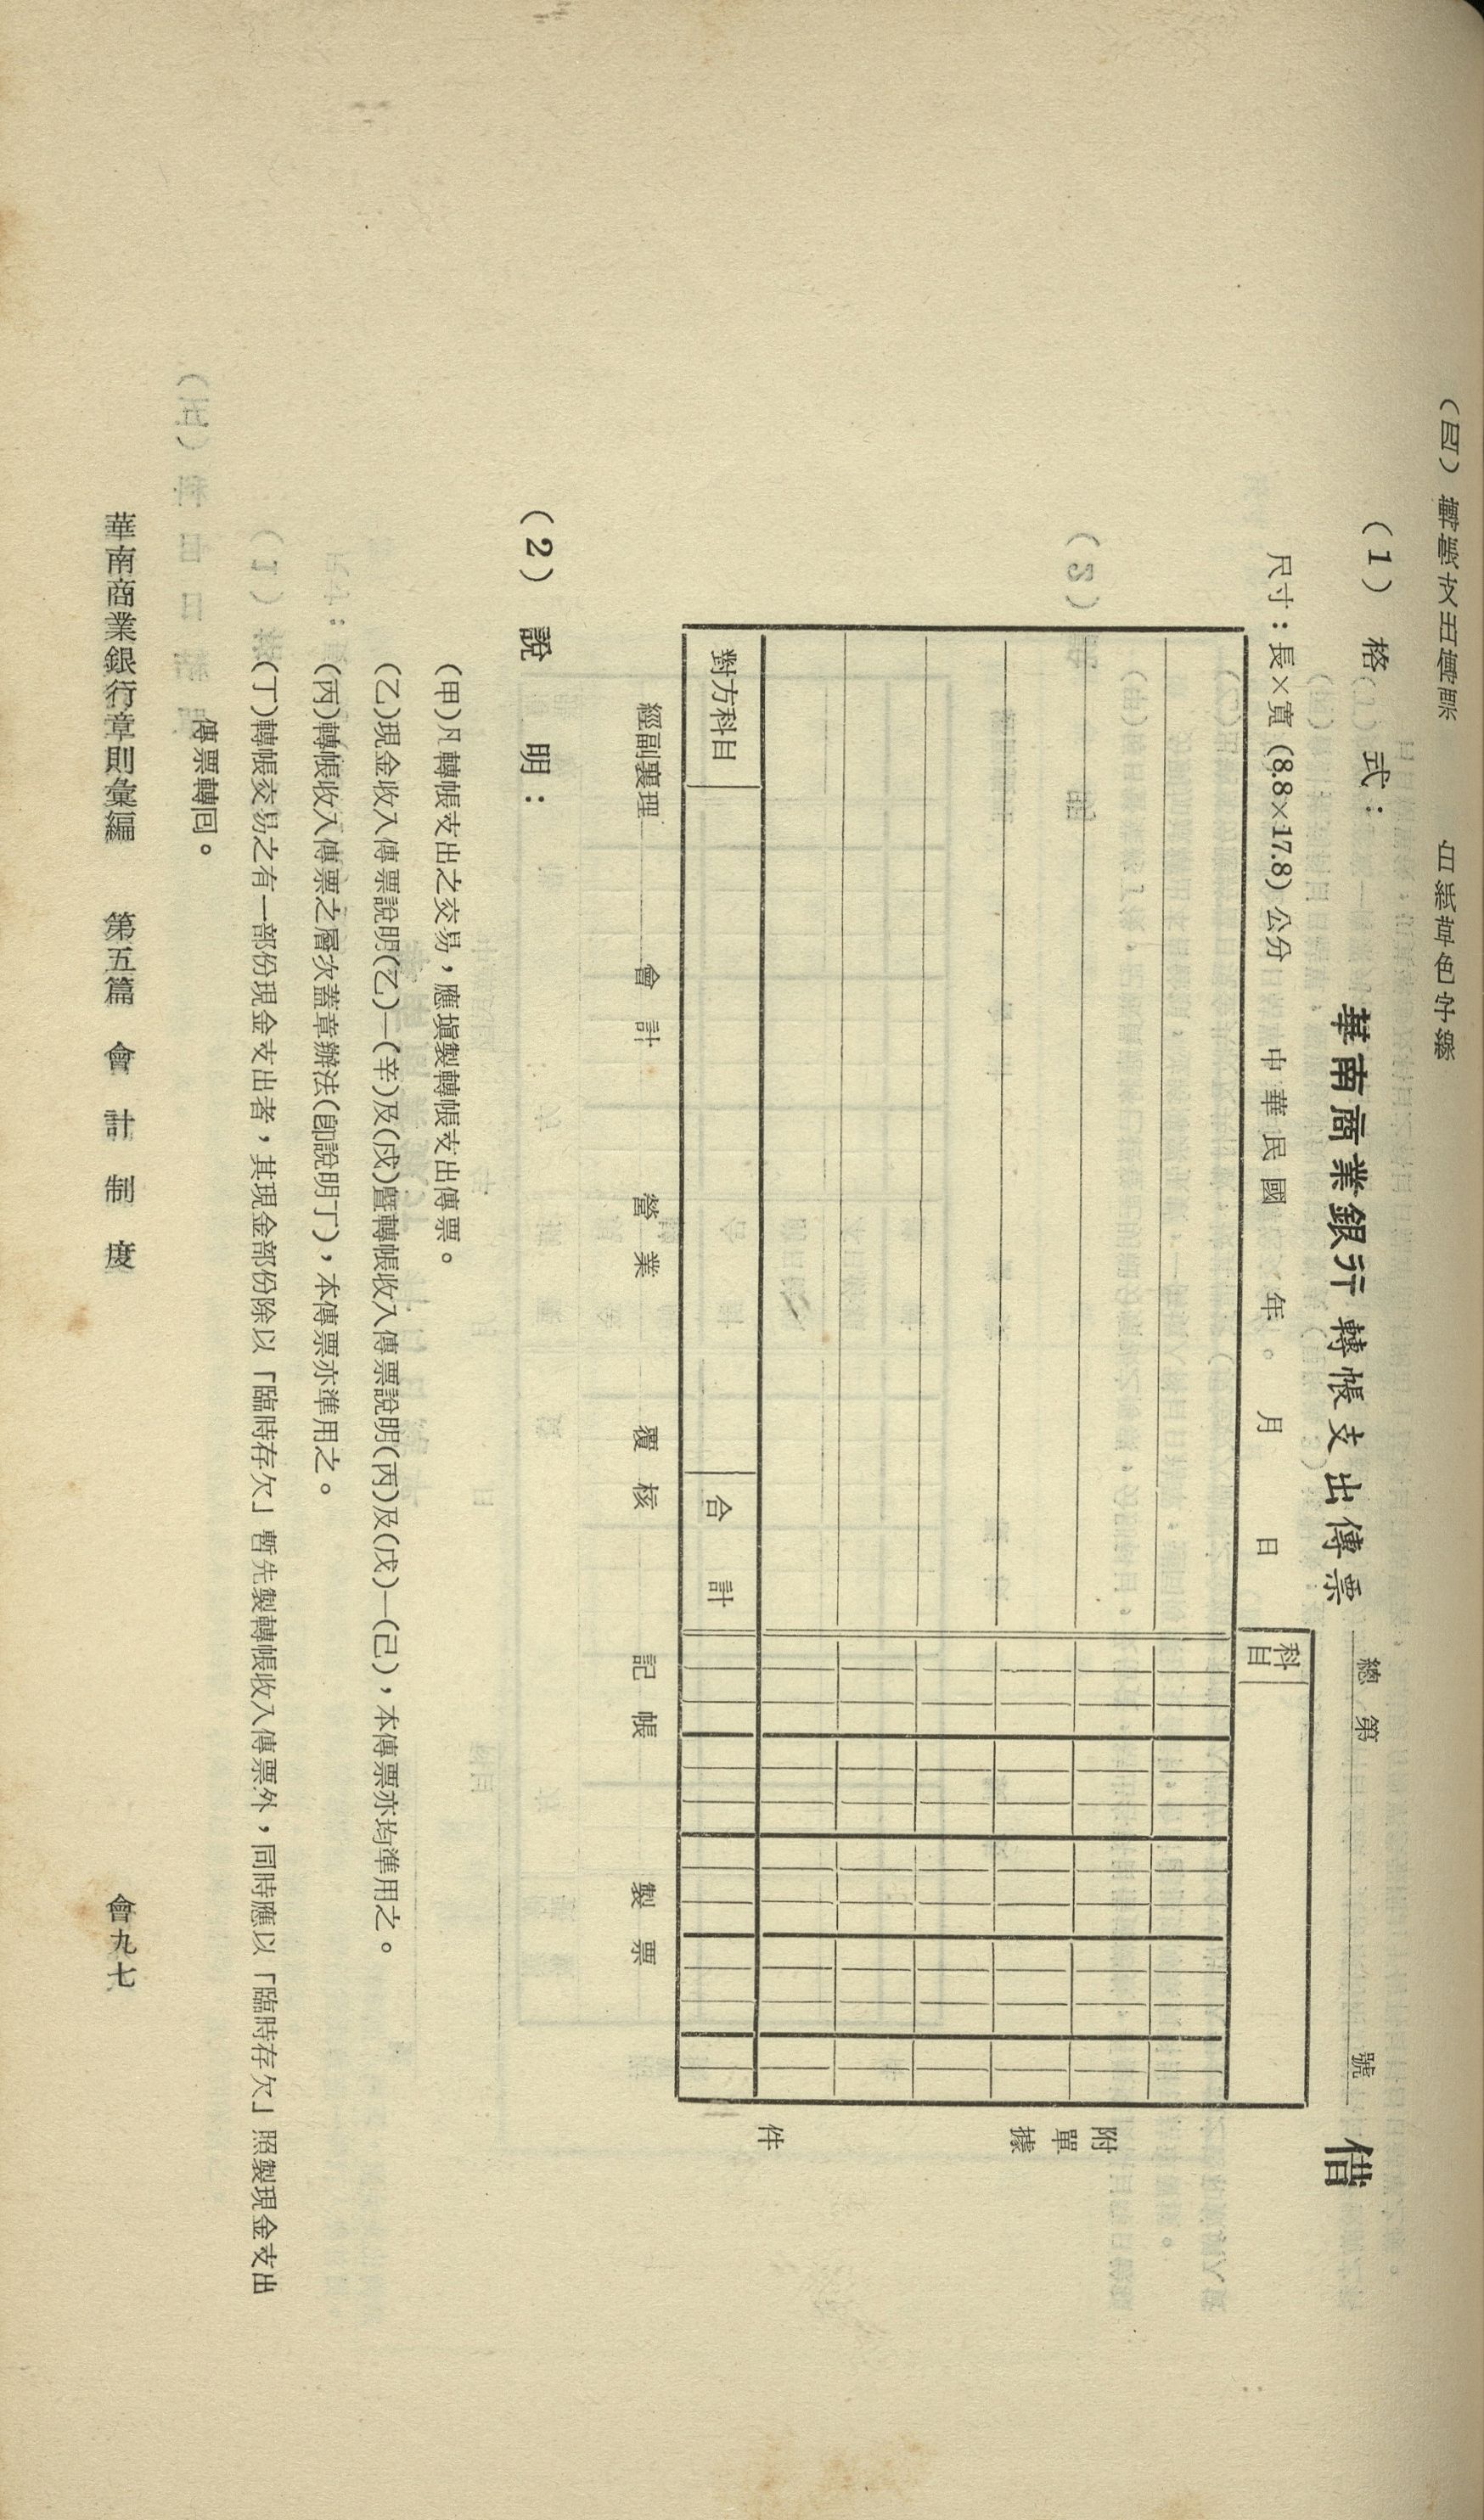 （四）轉帳支出傳票　　白紙青色字樣
（1）格　式：
華南商業銀行轉帳支出傳票
總第　　　號
借
尺寸：長×寬 (8.8×17.8) 公分
中華民國　年　月　日
科目
附單據　　件
對方科目
合計
經副襄理　會計　營業　覆核　記帳　製票
（2）說　明：
(甲)凡轉帳支出之交易，應塡製轉帳支出傳票。
(乙)現金收入傳票說明(乙)—(辛)及(戍)曁轉帳收入傳票說明(丙)及(戊)—(己)，本傳票亦均準用之。
(丙)轉帳收入傳票之層次蓋章辦法(卽說明丁)，本傳票亦準用之。
(丁)轉帳交易之有一部份現金支出者，其現金部份除以「臨時存欠」暫先製轉帳收入傳票外，同時應以「臨時存欠」照製現金支出
傳票轉囘。
華南商業銀行章則彙編　第五篇　會計制度　會九七